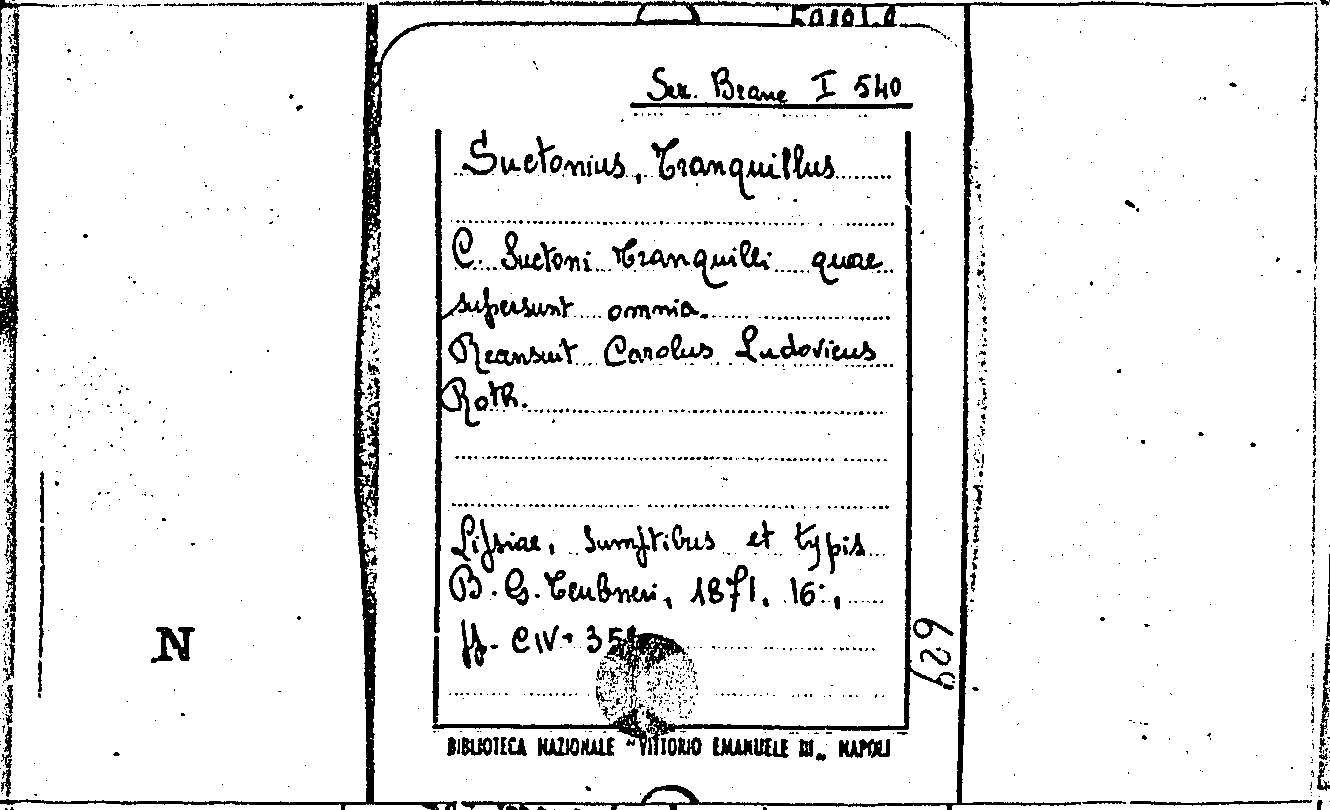 Sez. Branc I 540
Suetonius, Tranquillus
C. Suetoni Tranquilli quae
supersunt omnia.
Recensuit Carolus Ludovicus
Roth.
Lipsiae, sumptibus et typis
B. G. Teubneri, 1871. 16°,
pp. CIV-
629
N
BIBLIOTECA NAZIONALE "VITTORIO EMANUELE III„ NAPOLI